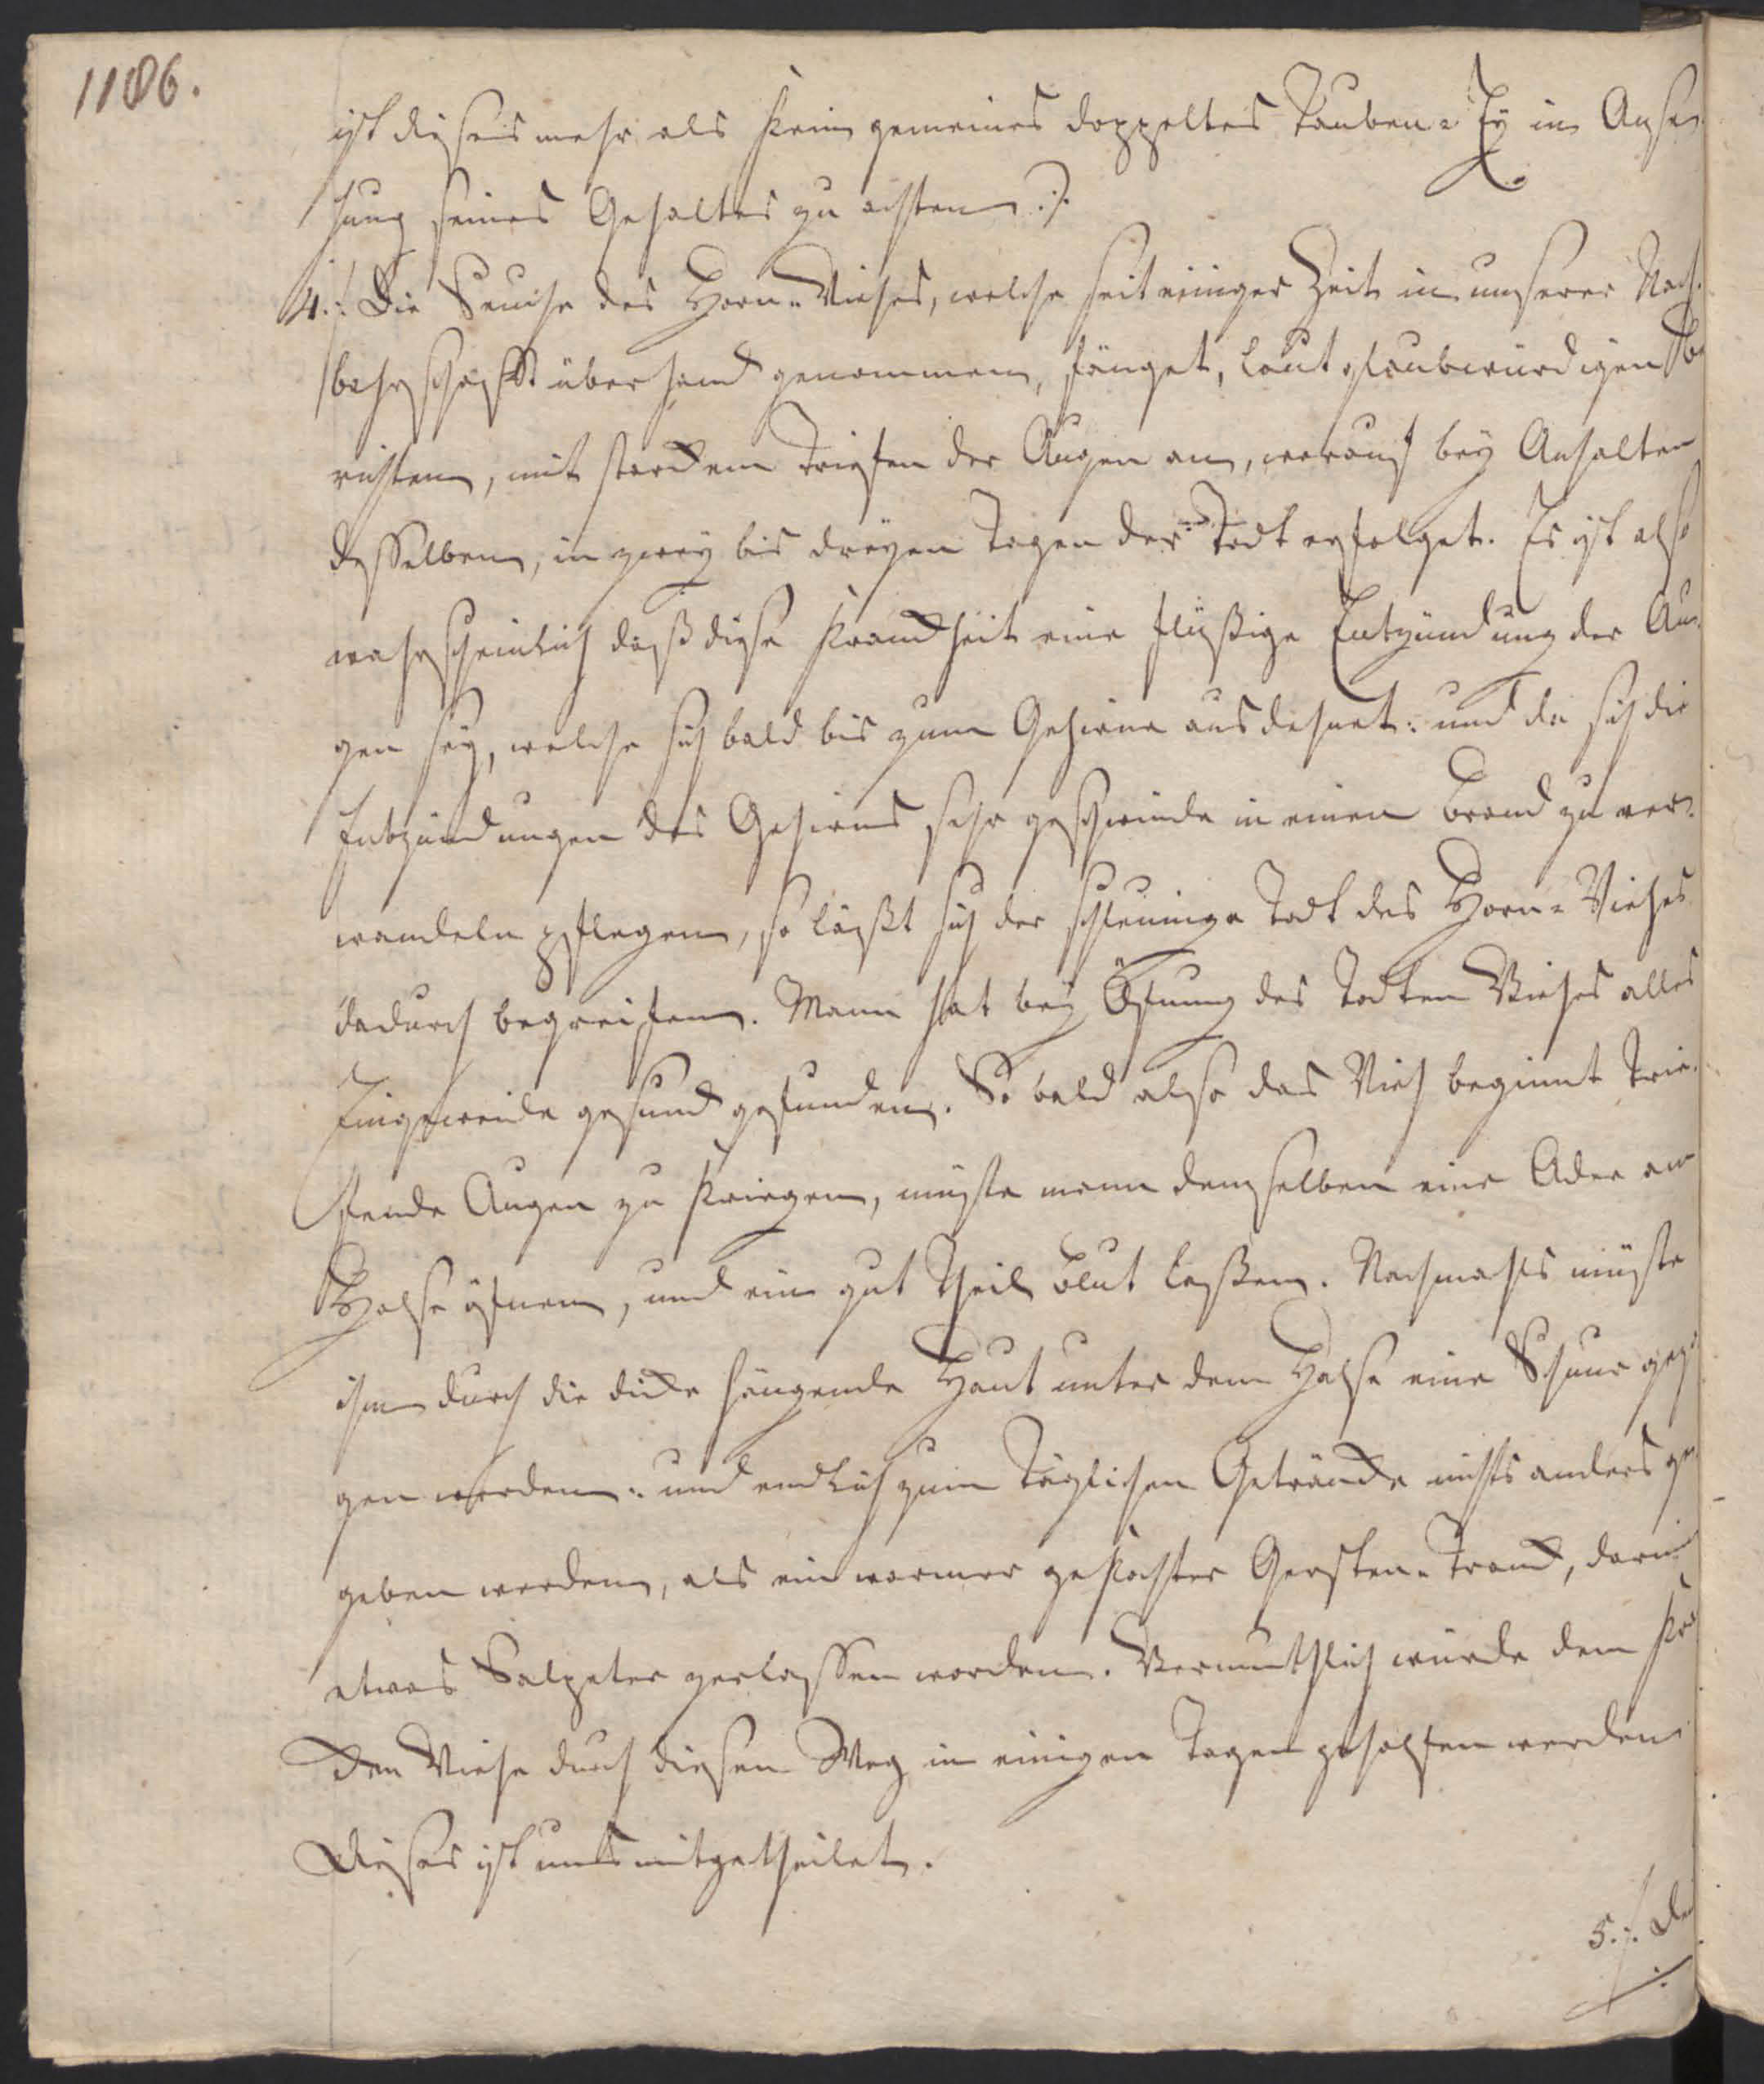 1186.
ist dieses mehr als keine gemeines doppeltes Tauben-Ey in Anse-
hung seines Gehaltes zu achten.).
4.: Die Seuche des Horn-Viehes, welche seit einiger Zeit in unserer Nach-
bahrschafft überhand genommen, fänget, laut glaubwürdigen Be
richten, mit starckem Triefen der Augen an, worauf bey Anhalten
desselben, in zwey bis dreyen Tagen der Todt erfolget. Es ist also
wahrscheinlich daß diese Kranckheit eine flüßige Entzündung der Au-
gen sey, welche sich bald bis zum Gehirne ausdehnet: und da sich die
Entzündungen des Gehirns sehr geschwinde in einen Brand zu ver-
wandeln pflegen, so läßt sich der schleunige Todt des Horn-Viehes
dadurch begreifen. Mann hat bey Öfnung des Todten Viehes alles
Eingeweide gesund gefunden. So bald also das Vieh beginnt Trie-
fende Augen zu kriegen, müste mann demselben eine Ader am
Halse öfnen, und ein gut Theil Blut laßen. Nachmahls müste
ihm durch die dicke hängende Haut unter dem Halse eine Schnur gezo
gen werden: und endlich zum Täglichen Geträncke nichts anders ge-
geben werden, als ein warmer gekochter Gersten-Tranck, darin
etwas Salpeter zerlassen worden. Vermuthlich würde dem kra
cken Viehe durch diesen Weg in einigen Tagen geholfen werden
Dieses ist uns mitgetheilet.
5.: De